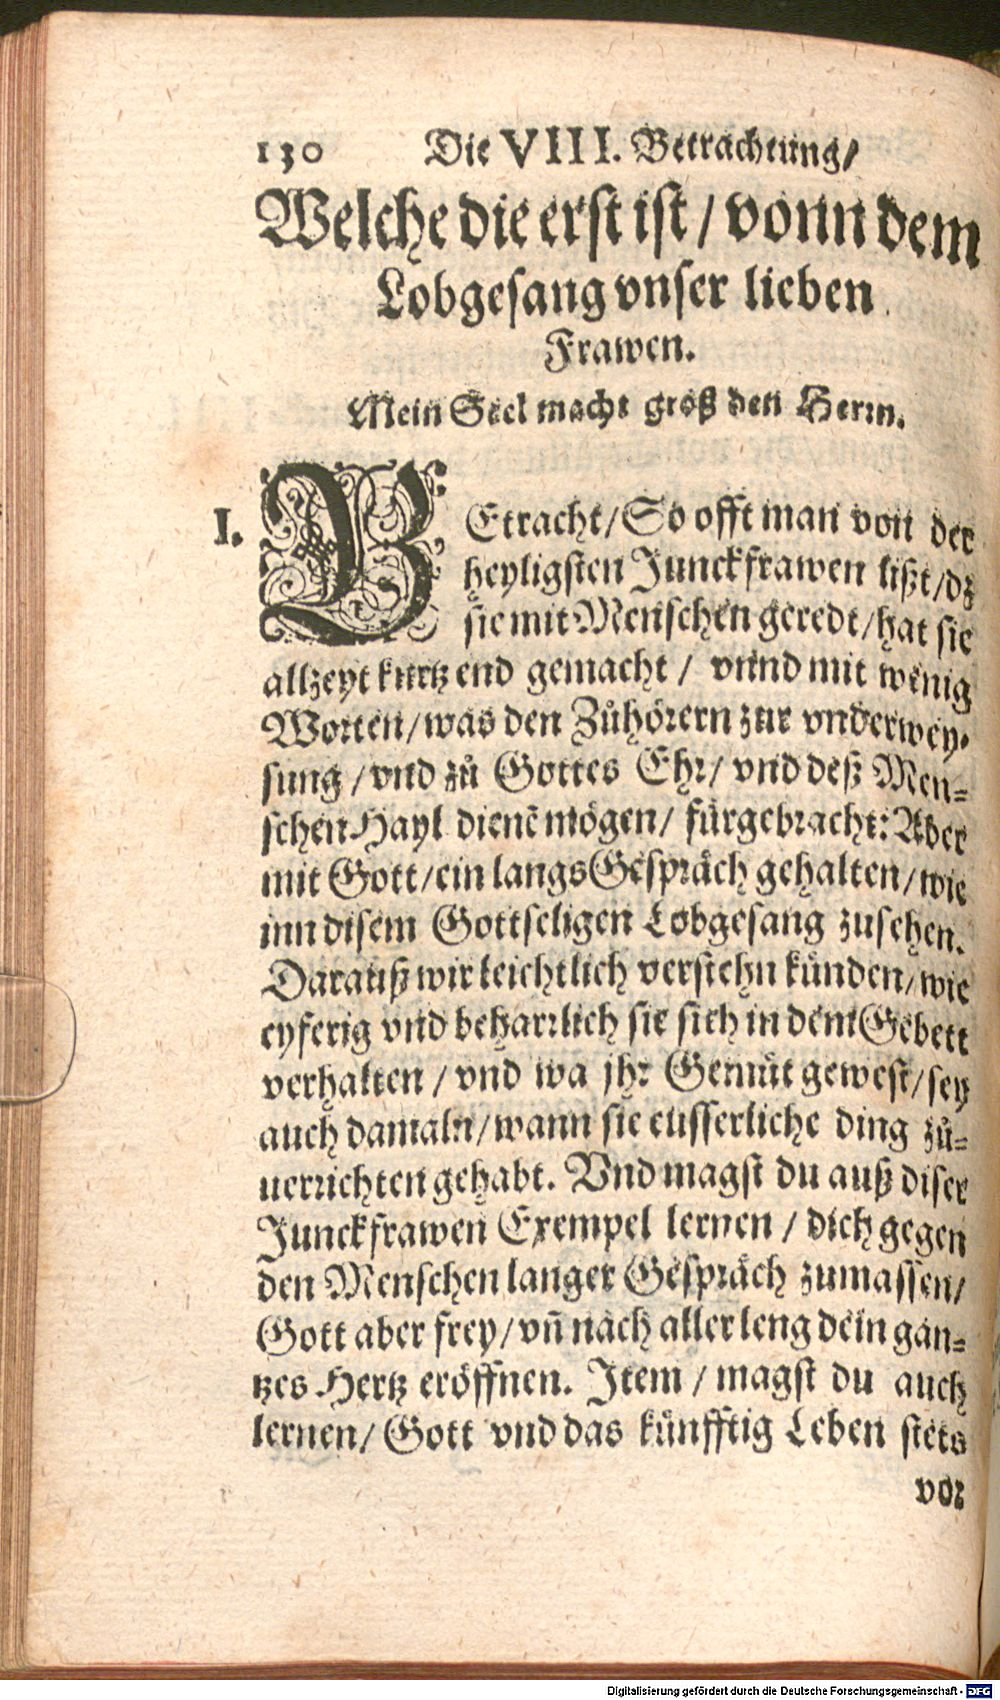 130 Die VIII. Betrachtung/
Welche die erst ist / vonn dem
Lobgesang vnser lieben
Frawen.
Mein Seel macht groß den Herrn.
I. BEtracht/ So offt man von der
heyligsten Junckfrawen lißt/ dz
sie mit Menschen geredt/ hat sie
allzeyt kurtz end gemacht / vnnd mit wenig
Worten/ was den Zůhörern zur vnderwey-
sung / vnd zů Gottes Ehr/ vnd deß Men-
schen Hayl dienẽ mögen/ fürgebracht: Aber
mit Gott/ ein langs Gespräch gehalten/ wie
inn disem Gottseligen Lobgesang zusehen.
Darauß wir leichtlich verstehn künden/ wie
eyferig vnd beharrlich sie sich in dem Gebett
verhalten / vnd wa jhr Gemüt gewest/ sey
auch damaln/ wann sie eusserliche ding zů-
uerrichten gehabt. Vnd magst du auß diser
Junckfrawen Exempel lernen / dich gegen
den Menschen langer Gespräch zumassen/
Gott aber frey/ vñ nach aller leng dein gan-
tzes Hertz eröffnen. Item / magst du auch
lernen/ Gott vnd das künfftig Leben stets
vor
Digitalisierung gefördert durch die Deutsche Forschungsgemeinschaft - DFG